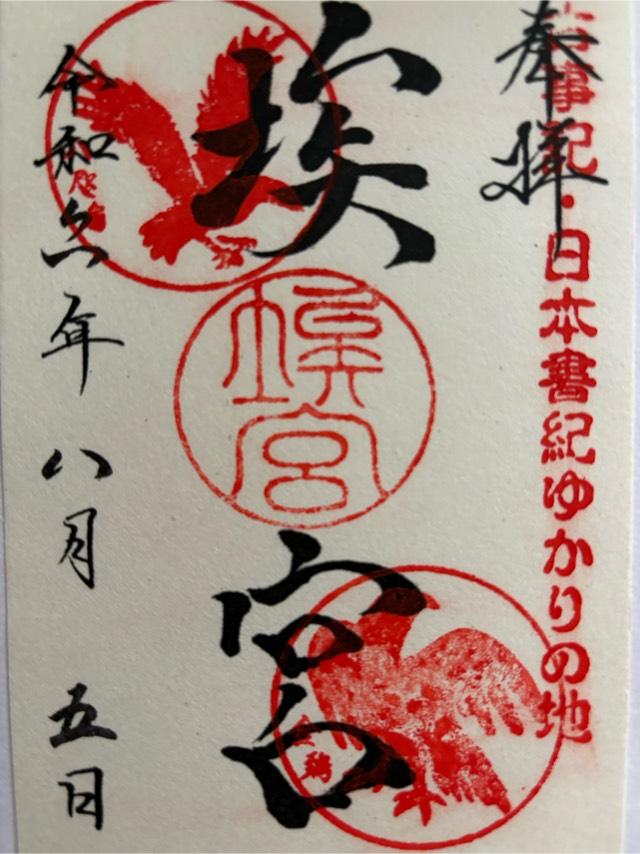 奉拝
古事記・日本書紀ゆかりの地
埃宮
埃宮
令和六年八月五日